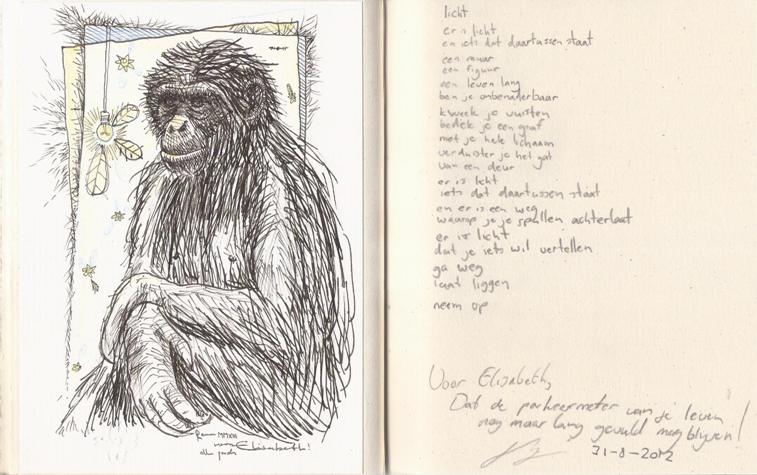 voor
Elisabeth!
alle goeds
licht
er is licht
en iets dat daartussen staat
een muur
een figuur
een leven lang
ben je onbenaderbaar
kweek je vuisten
bedek je een graf
met je hele lichaam
verduister je het gat
van een deur
er is licht
iets dat daartussen staat
en er is een weg
waarop je je spullen achterlaat
er is licht
dat je iets wil vertellen
ga weg
laat liggen
neem op
Voor Elisabeth,
Dat de parkeermeter van je leven
nog maar lang gevuld mag blijven!
31-8-2012